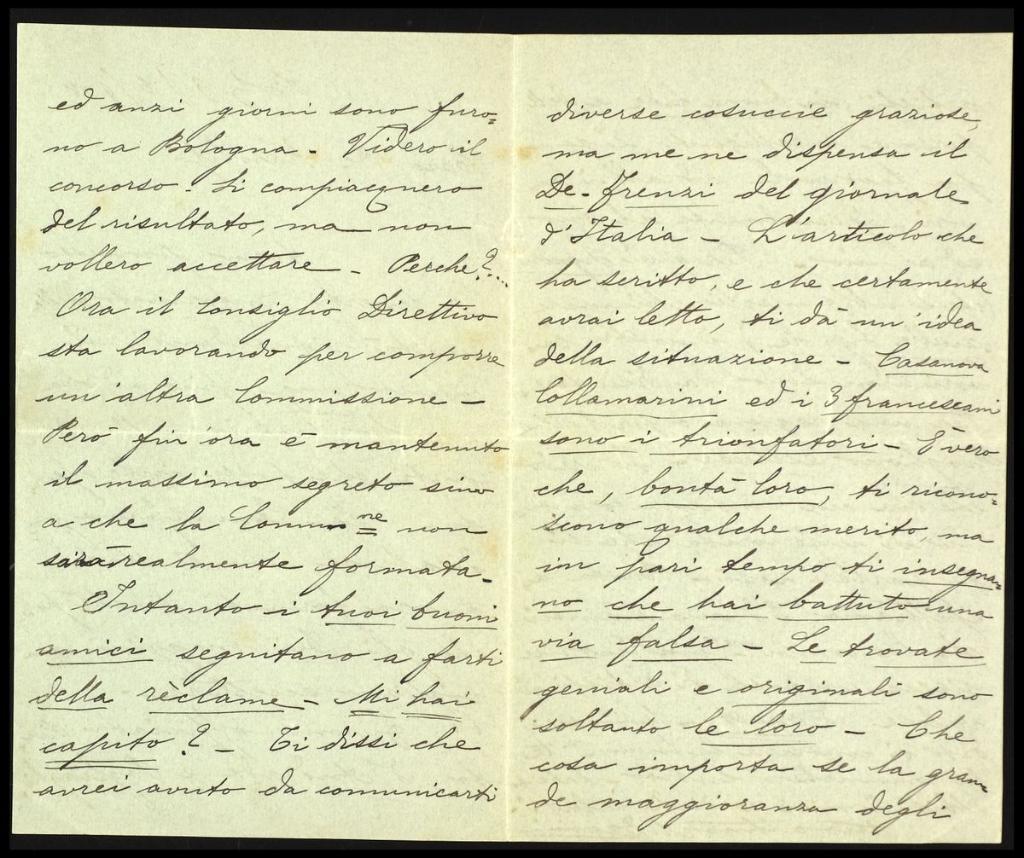 ed anzi giorni sono furo=
no a Bologna - Videro il
concorso - Si compiacquero
del risultato, ma non
vollero accettare - Perche?...
Ora il Consiglio Direttivo
sta lavorando per comporre
un'altra Commissione -
Però fin'ora è mantenuto
il massimo segreto sino
a che la Commne non
sarà realmente formata -
Intanto i tuoi buoni
amici seguitano a farti
della rèclame - Mi hai
capito? - Ti dissi che
avrei avuto da comunicarti
diverse cosuccie graziose,
ma me ne dispensa il
De-Frenzi del giornale
d'Italia - L'articolo che
ha scritto, e che certamente
avrai letto, ti dà un'idea
della situazione - Casanova
Collamarini ed i 3 francescani
sono i trionfatori - È vero
che, bontà loro, ti ricono=
scono qualche merito, ma
in pari tempo ti insegna=
no che hai battuto una
via falsa - Le trovate
geniali e originali sono
soltanto le loro - Che
cosa importa se la gran=
de maggioranza degli